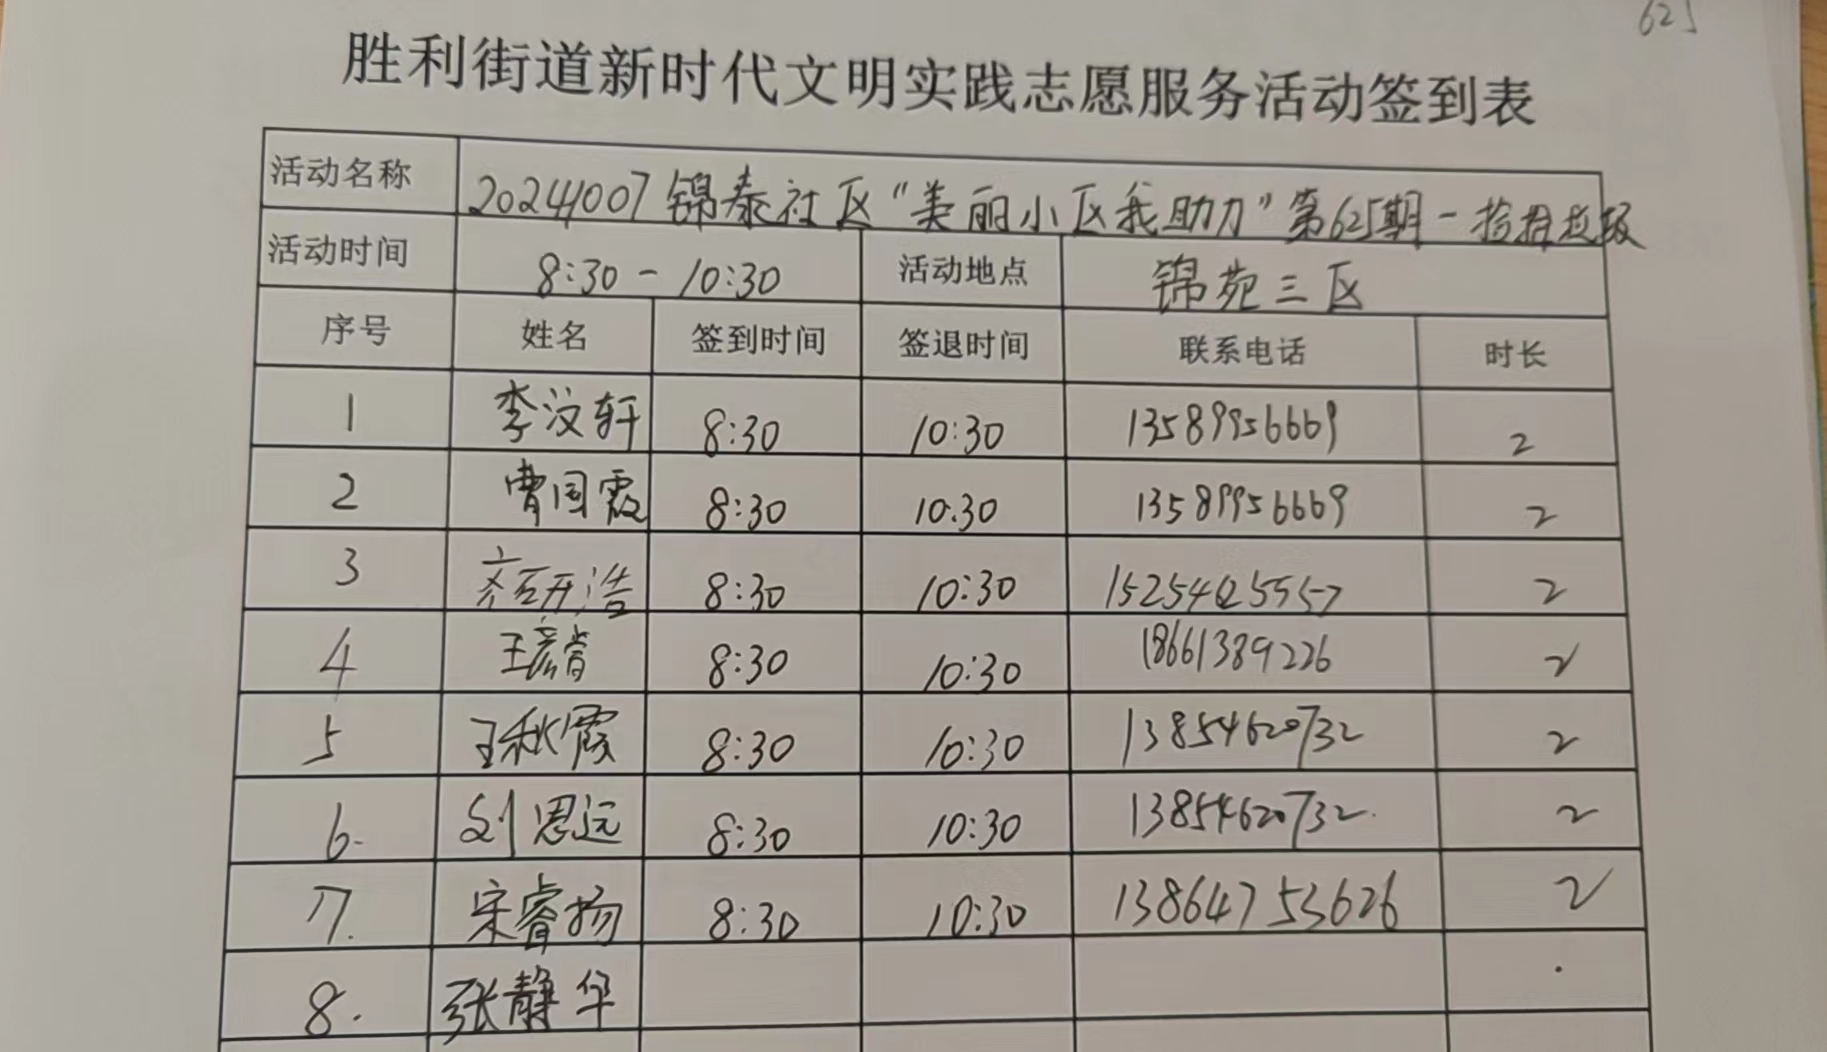 625
胜利街道新时代文明实践志愿服务活动签到表
活动名称 20241007锦泰社区“美丽小区我助力”第625期-捡拾垃圾
活动时间 8:30-10:30 活动地点 锦苑三区
序号 姓名 签到时间 签退时间 联系电话 时长
1 李汶轩 8:30 10:30 13589956669 2
2 曹国霞 8:30 10:30 13589956669 2
3 齐研浩 8:30 10:30 15254625557 2
4 王彦肖 8:30 10:30 18661389226 2
5 王秋霞 8:30 10:30 13854620732 2
6. 刘恩远 8:30 10:30 13854620732. 2
7. 宋睿扬 8:30 10:30 13864753626 2
8. 张静华